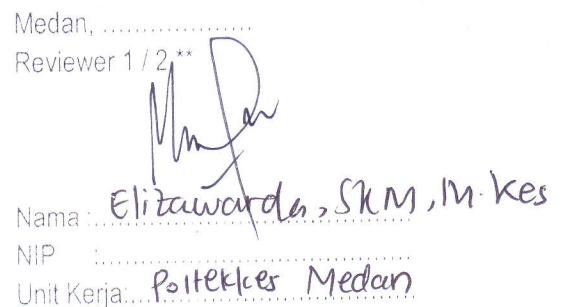 Medan, ....................
Reviewer 1 / 2 **
Nama : Elizawarda, SKM, M.Kes
NIP : ........................................
Unit Kerja: Poltekkes Medan